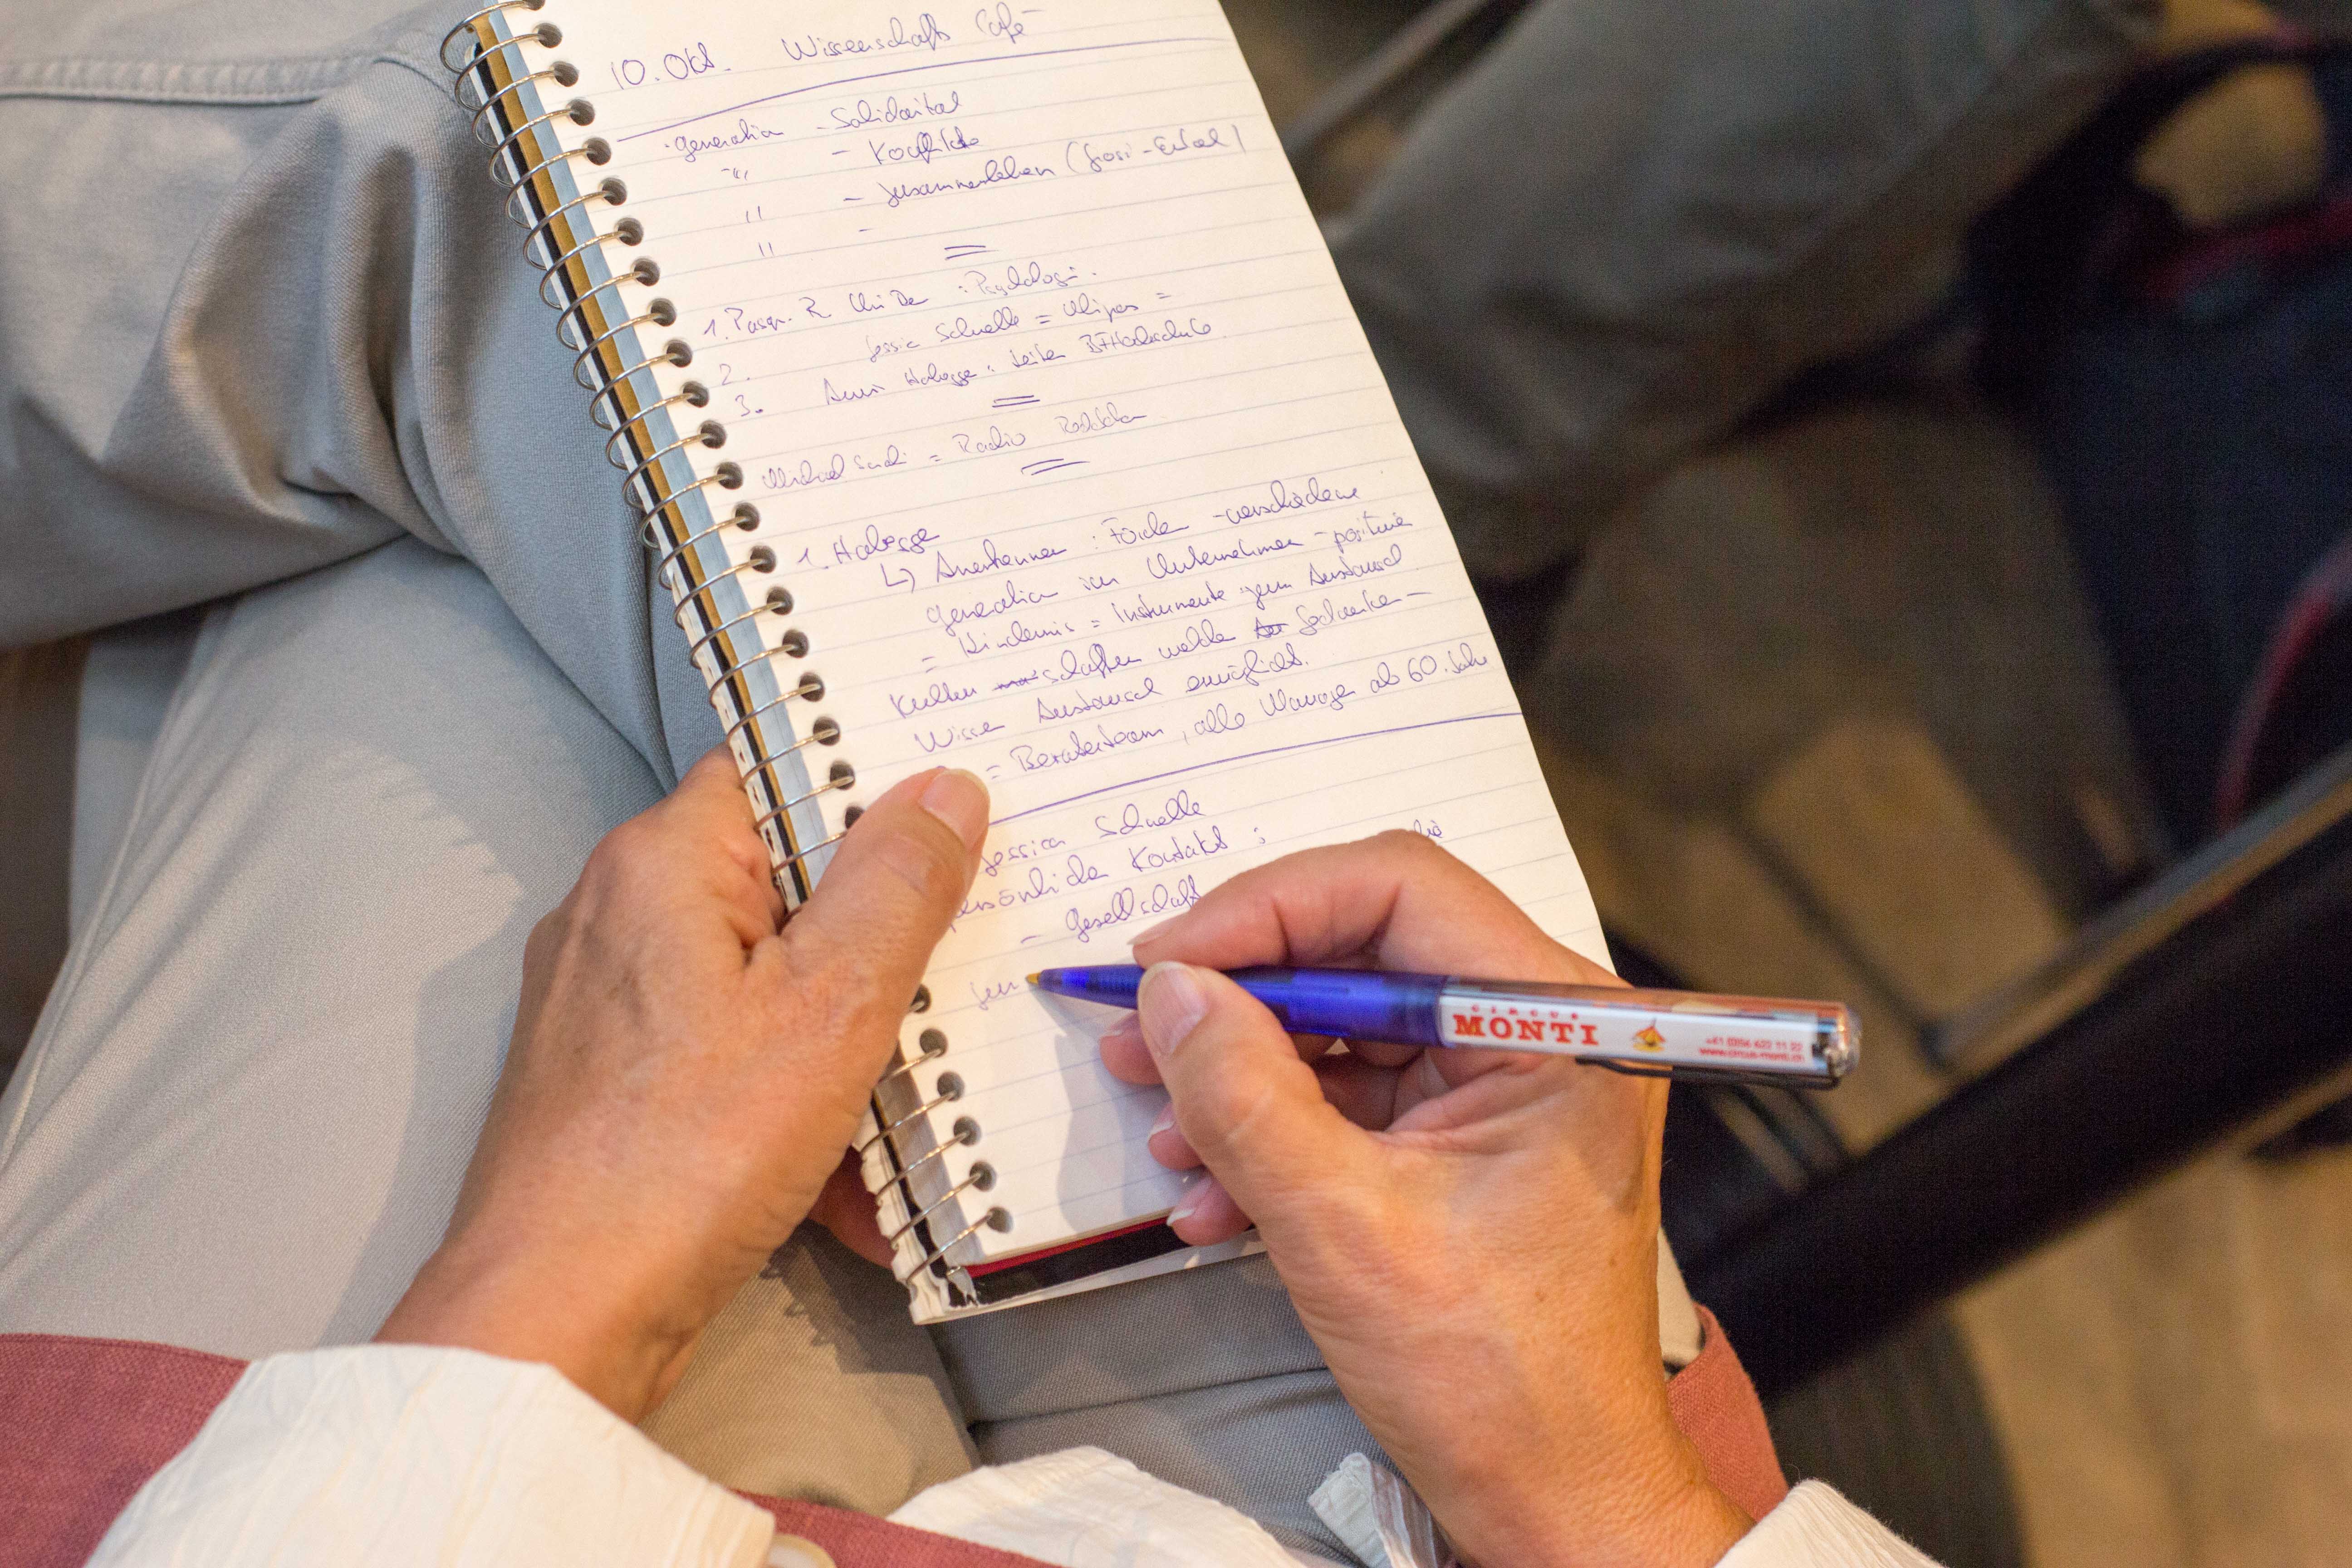 10. Okt. Wissenschafts Café
generation - Solidarität
-"- - Konflikte
" - zusammenleben (Gosi-Enkel)
" -
1. Pasq. : Psychologi.
2. Jessic Schnelle = Migros =
3. Habegge : Leiter BFHochschule
Michael = Radio
1. Habegge
↳ Anerkennen : Förder - verschiedene
generation im Unternehmen - positive
= Hindernis = instrumente zum Austausch
Kultur schaffen welche Gedanken-
Wissen Austausch ermöglicht.
= Beraterteam, alle Manager ab 60. Jahr
Jessica Schnelle
persönliche Kontakt :
- Gesellschaft
CIRCUS
MONTI
+41 (0)56 622 11 22
www.circus-monti.ch